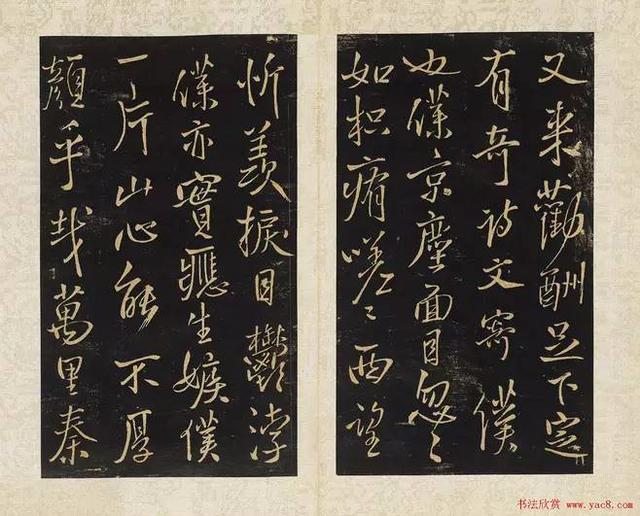 又来勸酬足下定
有奇詩文寄僕
也僕京塵面目忽〻
如枳痏嗟〻西望
忻羨捩目鬱浡
僕亦實應生嫉僕
一片山心能不厚
顏乎哉萬里秦
书法欣赏 www.yac8.com